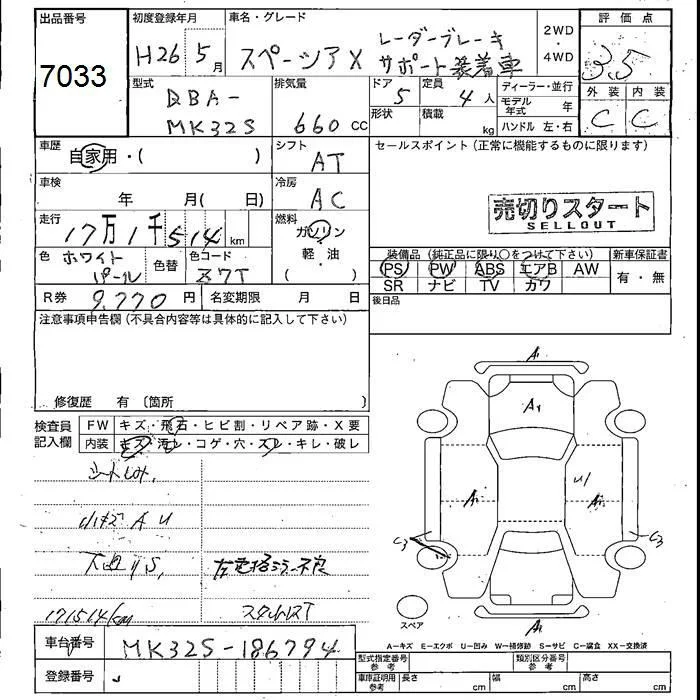 出品番号
7033
初度登録年月
H26 5月
車名・グレード
スペーシア X
レーダーブレーキ
サポート装着車
2WD
・
4WD
評価点
3.5
型式
DBA-
MK32S
排気量
660 cc
ドア
5
定員
4 人
形状
積載
kg
ディーラー・並行
モデル年式 年
ハンドル 左・右
外装 内装
C C
車歴
自家用・( )
シフト
AT
セールスポイント(正常に機能するものに限ります)
車検
年 月( 日)
冷房
AC
売切りスタート
SELLOUT
走行
17万1千514km
燃料
ガソリン
軽・油
( )
色
ホワイト
パール
色替
色コード
Z7T
装備品(純正品に限り○をつけて下さい)
新車保証書
PS PW ABS エアB AW
SR ナビ TV カワ
有・無
R券
9,770円
名変期限 月 日
後日品
注意事項申告欄(不具合内容等は具体的に記入して下さい)
修復歴 有〔箇所 〕
検査員
記入欄
FW
キズ・飛石・ヒビ割・リペア跡・X要
内装
キズ・汚レ・コゲ・穴・スレ・キレ・破レ
小キズ A U
下廻りS,
左電格ミラー不良
171514km
スタッドレスT
A1
A1
A1
U1
A2
C3
C3
A1
スペア
A-キズ E-エクボ U-凹み W-補修跡 S-サビ C-腐食 XX-交換済
車台番号
MK32S-186794
登録番号
型式指定番号
参考
類別区分番号
参考
車庫証明用
参考
長さ cm
幅 cm
高さ cm